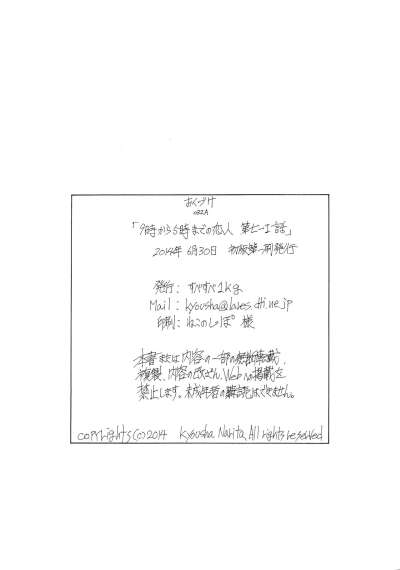 おくづけ
032A
「9時から5時までの恋人 第七-I話」
2014年 6月30日 初版第一刷発行
発行: すべすべ1kg
Mail: kyousha@lares.dti.ne.jp
印刷: ねこのしっぽ 様
本書または内容の一部の無断転載、
複製、内容の改ざん、Webへの掲載を
禁止します。未成年者の購読はできません。
copyrights(C)2014 kyousha Narita, All rights reserved